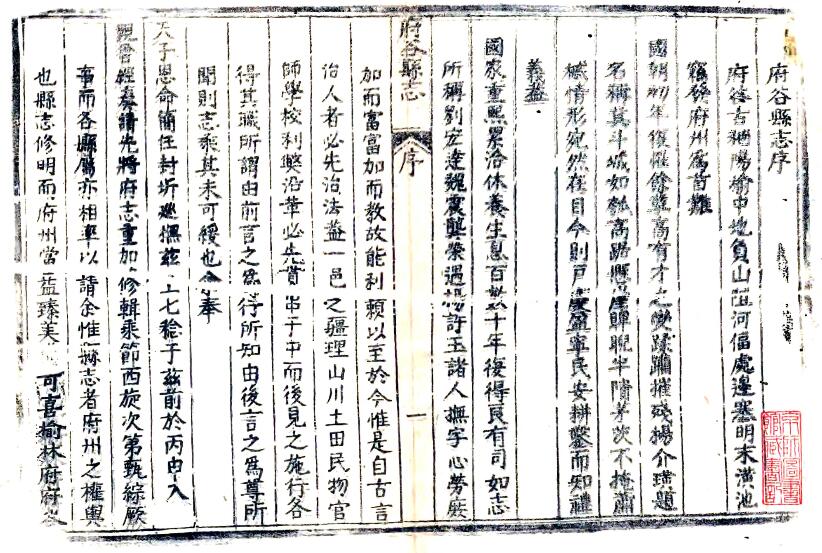 府谷縣志序
府谷古 陽榆中地負山阻河偪處邊塞明末潢池
竊發府州屬首難
國朝初年復罹餘孽高有才之變蹂躪摧殘揚介璜題
名稱其斗城如瓠高踞懸崖睥睨半隤茅茨不掩蕭
槭情形宛然在目今則戶慶盈寧民安耕鑿而知禮
義葢
國家重熙累洽休養生息百數十年復得良有司如志
所稱劉宏達魏震龔榮遇楊許玉諸人撫字心勞庶
府谷縣志
序
一
加而富富加而教故能利賴以至於今惟是自古言
治人者必先治法葢一邑之疆理山川土田民物官
師學校利獘沿革必先貫串于中而後見之施行各
得其職所謂由前言之為得所知由後言之為尊所
聞則志乘其未可緩也余奉
天子恩命簡任封圻廵撫茲土七稔于茲前於丙申入
覲曾經奏請先將府志重加修輯乘節西旋次第甄綜厥
事而各縣屬亦相率以請余惟縣志者府州之權輿
也縣志修明而府州當益臻美 可喜榆林府府谷
京師圖書
館藏書記